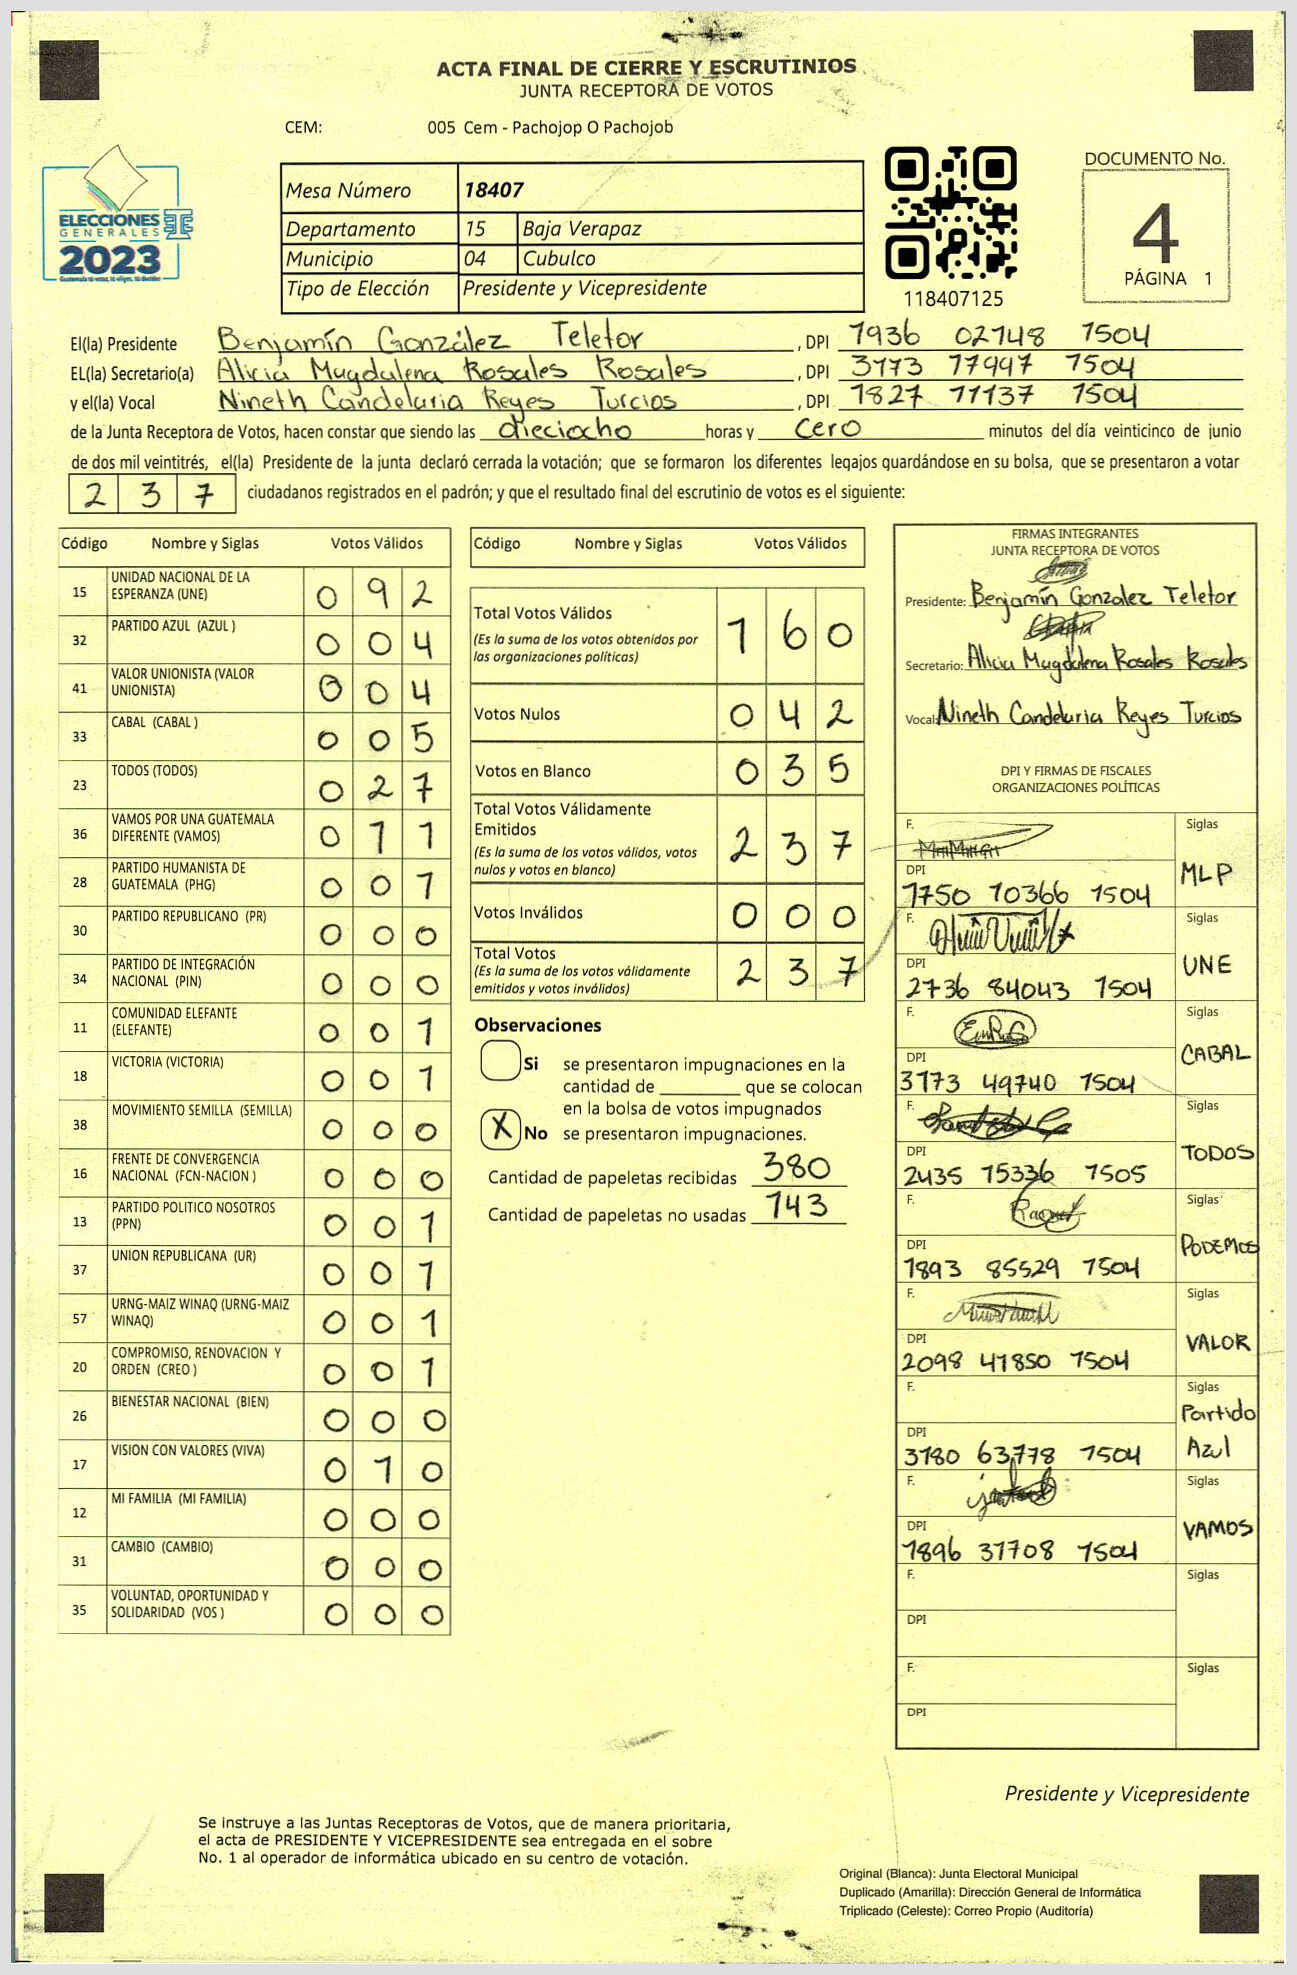 ACTA FINAL DE CIERRE Y ESCRUTINIOS
JUNTA RECEPTORA DE VOTOS
CEM: 005 Cem - Pachojop O Pachojob
ELECCIONES
GENERALES
2023
Mesa Número 18407
Departamento 15 Baja Verapaz
Municipio 04 Cubulco
Tipo de Elección Presidente y Vicepresidente
118407125
DOCUMENTO No.
4
PÁGINA 1
El(la) Presidente Benjamín González Teletor, DPI 1936 02748 1504
EL(la) Secretario(a) Alicia Magdalena Rosales Rosales, DPI 3173 17997 1504
y el(la) Vocal Nineth Candelaria Reyes Turcios, DPI 1827 11137 1504
de la Junta Receptora de Votos, hacen constar que siendo las dieciocho horas y cero minutos del día veinticinco de junio
de dos mil veintitrés, el(la) Presidente de la junta declaró cerrada la votación; que se formaron los diferentes legajos guardándose en su bolsa, que se presentaron a votar
2 3 7 ciudadanos registrados en el padrón; y que el resultado final del escrutinio de votos es el siguiente:
Código Nombre y Siglas Votos Válidos
15 UNIDAD NACIONAL DE LA ESPERANZA (UNE) 0 9 2
32 PARTIDO AZUL (AZUL ) 0 0 4
41 VALOR UNIONISTA (VALOR UNIONISTA) 0 0 4
33 CABAL (CABAL ) 0 0 5
23 TODOS (TODOS) 0 2 7
36 VAMOS POR UNA GUATEMALA DIFERENTE (VAMOS) 0 1 1
28 PARTIDO HUMANISTA DE GUATEMALA (PHG) 0 0 1
30 PARTIDO REPUBLICANO (PR) 0 0 0
34 PARTIDO DE INTEGRACIÓN NACIONAL (PIN) 0 0 0
11 COMUNIDAD ELEFANTE (ELEFANTE) 0 0 1
18 VICTORIA (VICTORIA) 0 0 1
38 MOVIMIENTO SEMILLA (SEMILLA) 0 0 0
16 FRENTE DE CONVERGENCIA NACIONAL (FCN-NACION ) 0 0 0
13 PARTIDO POLITICO NOSOTROS (PPN) 0 0 1
37 UNION REPUBLICANA (UR) 0 0 1
57 URNG-MAIZ WINAQ (URNG-MAIZ WINAQ) 0 0 1
20 COMPROMISO, RENOVACION Y ORDEN (CREO ) 0 0 1
26 BIENESTAR NACIONAL (BIEN) 0 0 0
17 VISION CON VALORES (VIVA) 0 1 0
12 MI FAMILIA (MI FAMILIA) 0 0 0
31 CAMBIO (CAMBIO) 0 0 0
35 VOLUNTAD, OPORTUNIDAD Y SOLIDARIDAD (VOS ) 0 0 0
Código Nombre y Siglas Votos Válidos
Total Votos Válidos 1 6 0
(Es la suma de los votos obtenidos por
las organizaciones políticas)
Votos Nulos 0 4 2
Votos en Blanco 0 3 5
Total Votos Válidamente
Emitidos 2 3 7
(Es la suma de los votos válidos, votos
nulos y votos en blanco)
Votos Inválidos 0 0 0
Total Votos 2 3 7
(Es la suma de los votos válidamente
emitidos y votos inválidos)
Observaciones
Si se presentaron impugnaciones en la
cantidad de ________ que se colocan
en la bolsa de votos impugnados
X No se presentaron impugnaciones.
Cantidad de papeletas recibidas 380
Cantidad de papeletas no usadas 143
FIRMAS INTEGRANTES
JUNTA RECEPTORA DE VOTOS
Presidente: Benjamín Gonzalez Teletor
Secretario: Alicia Magdalena Rosales Rosales
Vocal: Nineth Candelaria Reyes Turcios
DPI Y FIRMAS DE FISCALES
ORGANIZACIONES POLÍTICAS
F. Siglas
MLP
DPI
1750 10366 1504
F. Siglas
UNE
DPI
2736 84043 1504
F. Siglas
CABAL
DPI
3173 49740 1504
F. Siglas
TODOS
DPI
2435 15336 1505
F. Siglas
PODEMOS
DPI
1893 85529 1504
F. Siglas
VALOR
DPI
2098 41850 1504
F. Siglas
Partido
Azul
DPI
3180 63778 1504
F. Siglas
VAMOS
DPI
1896 31708 1504
F. Siglas
DPI
F. Siglas
DPI
Presidente y Vicepresidente
Se instruye a las Juntas Receptoras de Votos, que de manera prioritaria,
el acta de PRESIDENTE Y VICEPRESIDENTE sea entregada en el sobre
No. 1 al operador de informática ubicado en su centro de votación.
Original (Blanca): Junta Electoral Municipal
Duplicado (Amarilla): Dirección General de Informática
Triplicado (Celeste): Correo Propio (Auditoría)